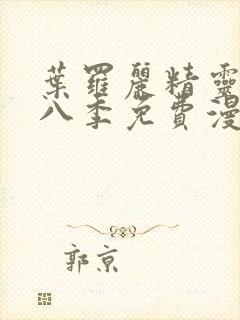 葉羅麗精靈
八季免費漫
郭京